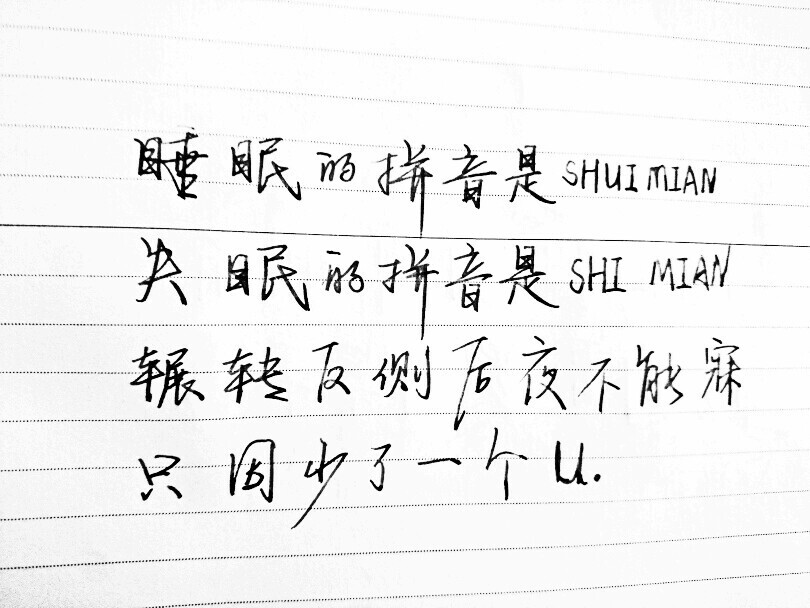 睡眠的拼音是SHUIMIAN
失眠的拼音是SHI MIAN
辗转反侧后夜不能寐
只因少了一个U.